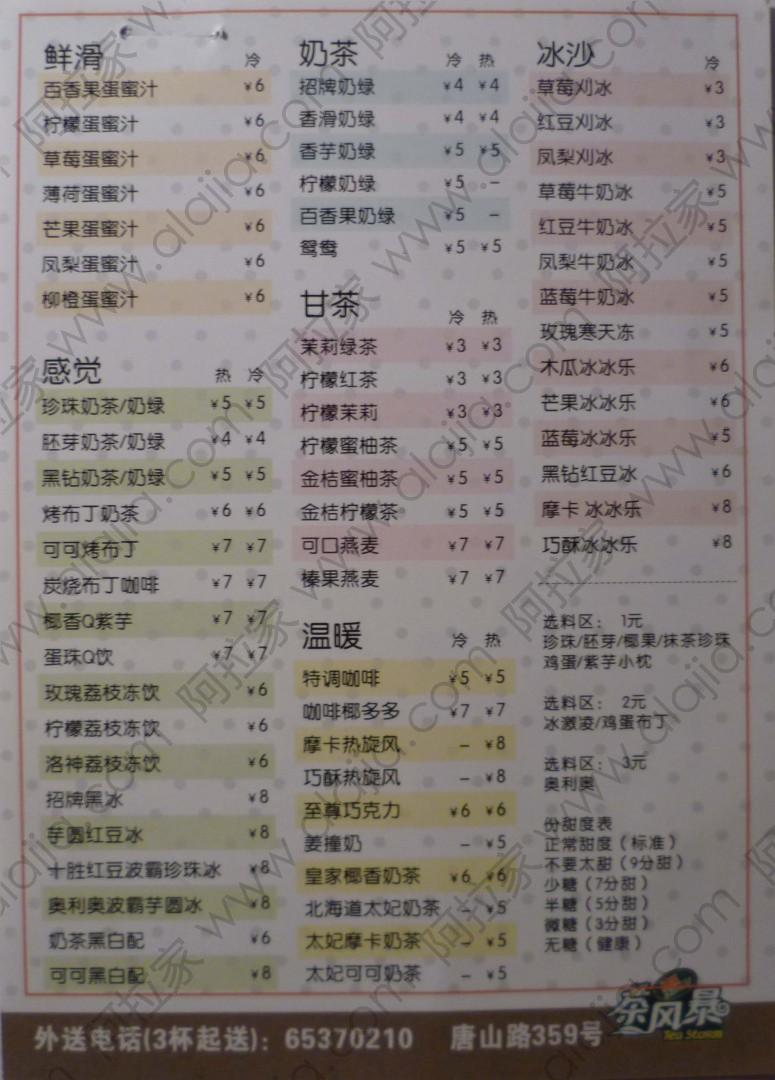 鲜滑 冷
百香果蛋蜜汁 ¥6
柠檬蛋蜜汁 ¥6
草莓蛋蜜汁 ¥6
薄荷蛋蜜汁 ¥6
芒果蛋蜜汁 ¥6
凤梨蛋蜜汁 ¥6
柳橙蛋蜜汁 ¥6
感觉 热 冷
珍珠奶茶/奶绿 ¥5 ¥5
胚芽奶茶/奶绿 ¥4 ¥4
黑钻奶茶/奶绿 ¥5 ¥5
烤布丁奶茶 ¥6 ¥6
可可烤布丁 ¥7 ¥7
炭烧布丁咖啡 ¥7 ¥7
椰香Q紫芋 ¥7 ¥7
蛋珠Q饮 ¥7 ¥7
玫瑰荔枝冻饮 ¥6
柠檬荔枝冻饮 ¥6
洛神荔枝冻饮 ¥6
招牌黑冰 ¥8
芋圆红豆冰 ¥8
十胜红豆波霸珍珠冰 ¥8
奥利奥波霸芋圆冰 ¥8
奶茶黑白配 ¥6
可可黑白配 ¥8
奶茶 冷 热
招牌奶绿 ¥4 ¥4
香滑奶绿 ¥4 ¥4
香芋奶绿 ¥5 ¥5
柠檬奶绿 ¥5 –
百香果奶绿 ¥5 –
鸳鸯 ¥5 ¥5
甘茶 冷 热
茉莉绿茶 ¥3 ¥3
柠檬红茶 ¥3 ¥3
柠檬茉莉 ¥3 ¥3
柠檬蜜柚茶 ¥5 ¥5
金桔蜜柚茶 ¥5 ¥5
金桔柠檬茶 ¥5 ¥5
可口燕麦 ¥7 ¥7
榛果燕麦 ¥7 ¥7
温暖 冷 热
特调咖啡 ¥5 ¥5
咖啡椰多多 ¥7 ¥7
摩卡热旋风 – ¥8
巧酥热旋风 – ¥8
至尊巧克力 ¥6 ¥6
姜撞奶 – ¥5
皇家椰香奶茶 ¥6 ¥6
北海道太妃奶茶 – ¥5
太妃摩卡奶茶 – ¥5
太妃可可奶茶 – ¥5
冰沙 冷
草莓刈冰 ¥3
红豆刈冰 ¥3
凤梨刈冰 ¥3
草莓牛奶冰 ¥5
红豆牛奶冰 ¥5
凤梨牛奶冰 ¥5
蓝莓牛奶冰 ¥5
玫瑰寒天冻 ¥5
木瓜冰冰乐 ¥6
芒果冰冰乐 ¥6
蓝莓冰冰乐 ¥5
黑钻红豆冰 ¥6
摩卡 冰冰乐 ¥8
巧酥冰冰乐 ¥8
选料区： 1元
珍珠/胚芽/椰果/抹茶珍珠
鸡蛋/紫芋小枕
选料区： 2元
冰激凌/鸡蛋布丁
选料区： 3元
奥利奥
份甜度表
正常甜度（标准）
不要太甜（9分甜）
少糖（7分甜）
半糖（5分甜）
微糖（3分甜）
无糖（健康）
外送电话(3杯起送)：65370210 唐山路359号
茶风暴
Tea Storm
阿拉家 www.alajia.com